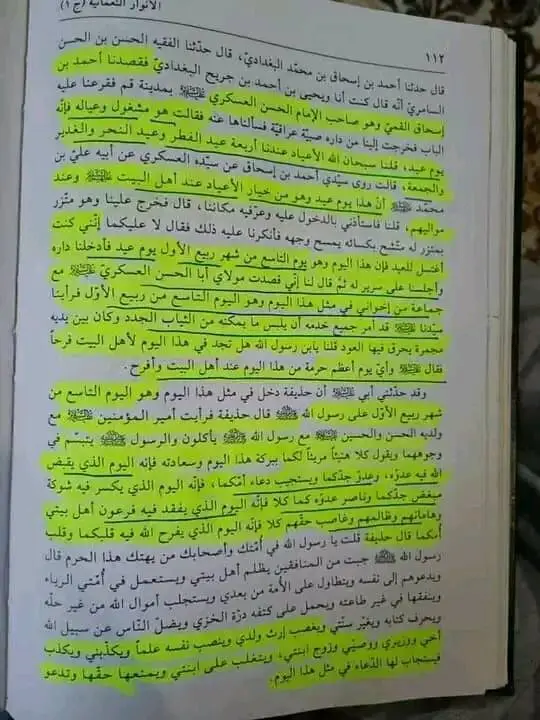 الأنوار النعمانية (ج ١)
١١٢
قال حدثنا أحمد بن إسحاق بن محمّد البغداديّ، قال حدّثنا الفقيه الحسن بن الحسن
السامريّ أنّه قال كنت أنا ويحيى بن أحمد بن جريح البغداديّ فقصدنا أحمد بن
إسحاق القميّ وهو صاحب الإمام الحسن العسكري عليه السلام بمدينة قم فقرعنا عليه
الباب فخرجت إلينا من داره صبيّة عراقيّة فسألناها عنه فقالت هو مشغول وعياله فإنّه
يوم عيد، قلنا سبحان الله الأعياد عندنا أربعة عيد الفطر وعيد النحر والغدير
والجمعة، قالت روى سيّدي أحمد بن إسحاق عن سيّده العسكري عن أبيه عليّ بن
محمّد عليه السلام أنّ هذا يوم عيد وهو من خيار الأعياد عند أهل البيت عليهم السلام وعند
مواليهم، قلنا فاستأذني بالدخول عليه وعرّفيه مكاننا، قال فخرج علينا وهو متّزر
بمتزر له متّشح بكسائه يمسح وجهه فأنكرنا عليه ذلك فقال لا عليكما إنّني كنت
أغتسل للعيد فإن هذا اليوم وهو يوم التاسع من شهر ربيع الأول يوم عيد فأدخلنا داره
وأجلسنا على سرير له ثمّ قال لنا إنّي قصدت مولاي أبا الحسن العسكريّ عليه السلام مع
جماعة من إخواني في مثل هذا اليوم وهو اليوم التاسع من ربيع الأوّل فرأينا
سيّدنا عليه السلام قد أمر جميع خدمه أن يلبس ما يمكنه من الثياب الجدد وكان بين يديه
مجمرة يحرق فيها العود قلنا يابن رسول الله هل تجد في هذا اليوم لأهل البيت فرحاً
فقال عليه السلام وأيّ يوم أعظم حرمة من هذا اليوم عند أهل البيت وأفرح.
وقد حدّثني أبي عليه السلام أن حذيفة دخل في مثل هذا اليوم وهو اليوم التاسع من
شهر ربيع الأوّل على رسول الله ﷺ قال حذيفة فرأيت أمير المؤمنين عليه السلام مع
ولديه الحسن والحسين عليهما السلام مع رسول الله ﷺ يأكلون والرسول ﷺ يتبسّم في
وجوههما ويقول كلا هنيئاً مريئاً لكما ببركة هذا اليوم وسعادته فإنه اليوم الذي يقبض
الله فيه عدوّه، وعدوّ جدّكما ويستجيب دعاء أمّكما، فإنّه اليوم الذي يكسر فيه شوكة
مبغض جدّكما وناصر عدوّه كما كلا فإنّه اليوم الذي يفقد فيه فرعون أهل بيتي
وهامانهم وظالمهم وغاصب حقّهم كلا فإنّه اليوم الذي يفرح الله فيه قلبكما وقلب
أمكما قال حذيفة قلت يا رسول الله في أمّتك وأصحابك من يهتك هذا الحرم قال
رسول الله ﷺ جبت من المنافقين يظلم أهل بيتي ويستعمل في أمّتي الرياء
ويدعوهم إلى نفسه ويتطاول على الأمة من بعدي ويستجلب أموال الله من غير حلّه
وينفقها في غير طاعته ويحمل على كتفه درّة الخزي ويضلّ الناس عن سبيل الله
ويحرف كتابه ويغيّر سنّتي ويغصب إرث ولدي وينصب نفسه علماً ويكذّبني ويكذب
أخي ووزيري ووصيّي وزوج ابنتي، ويتغلب على ابنتي ويمنعها حقّها وتدعو
فيستجاب لها الدّعاء في مثل هذا اليوم.